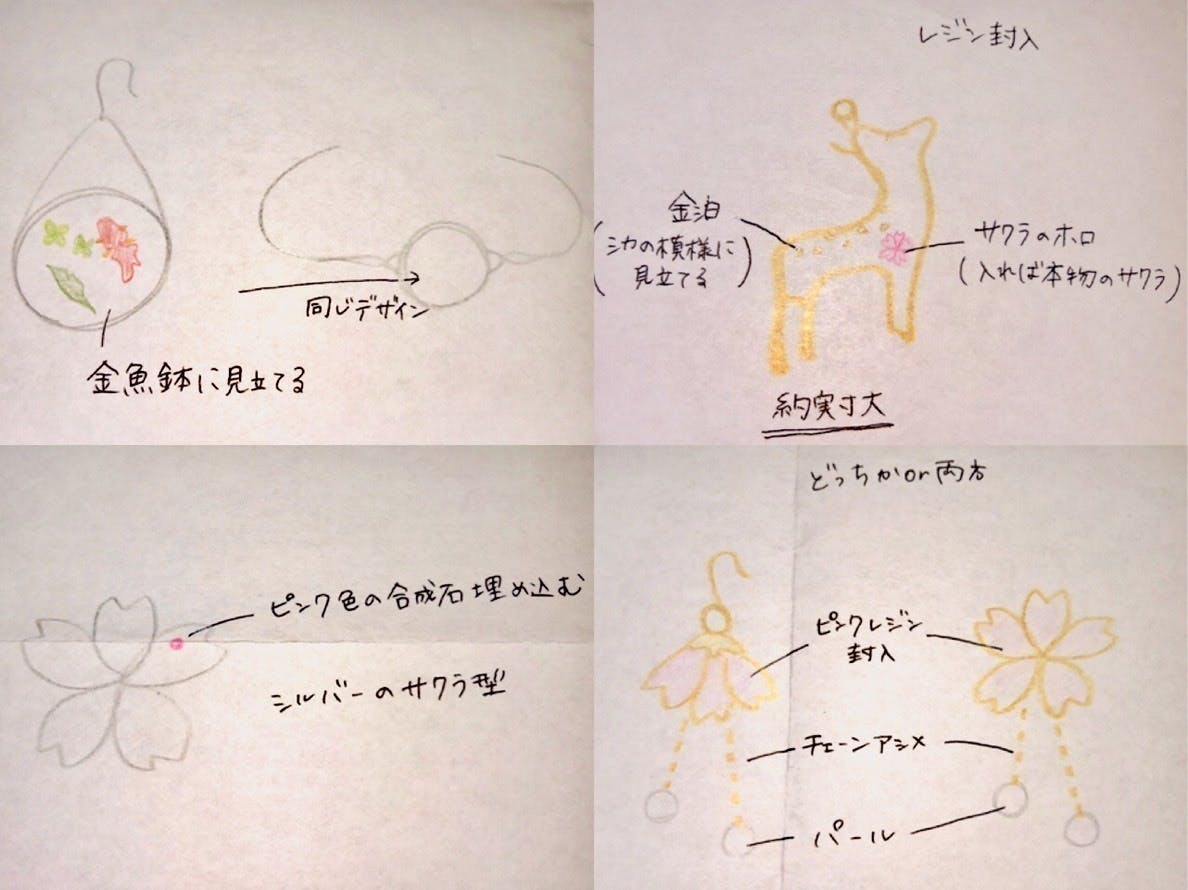 同じデザイン
金魚鉢に見立てる
レジン封入
金泊
(シカの模様に
見立てる)
サクラのホロ
(入れば本物のサクラ)
約実寸大
ピンク色の合成石埋め込む
シルバーのサクラ型
どっちかor両方
ピンクレジン
封入
チェーンアシメ
パール